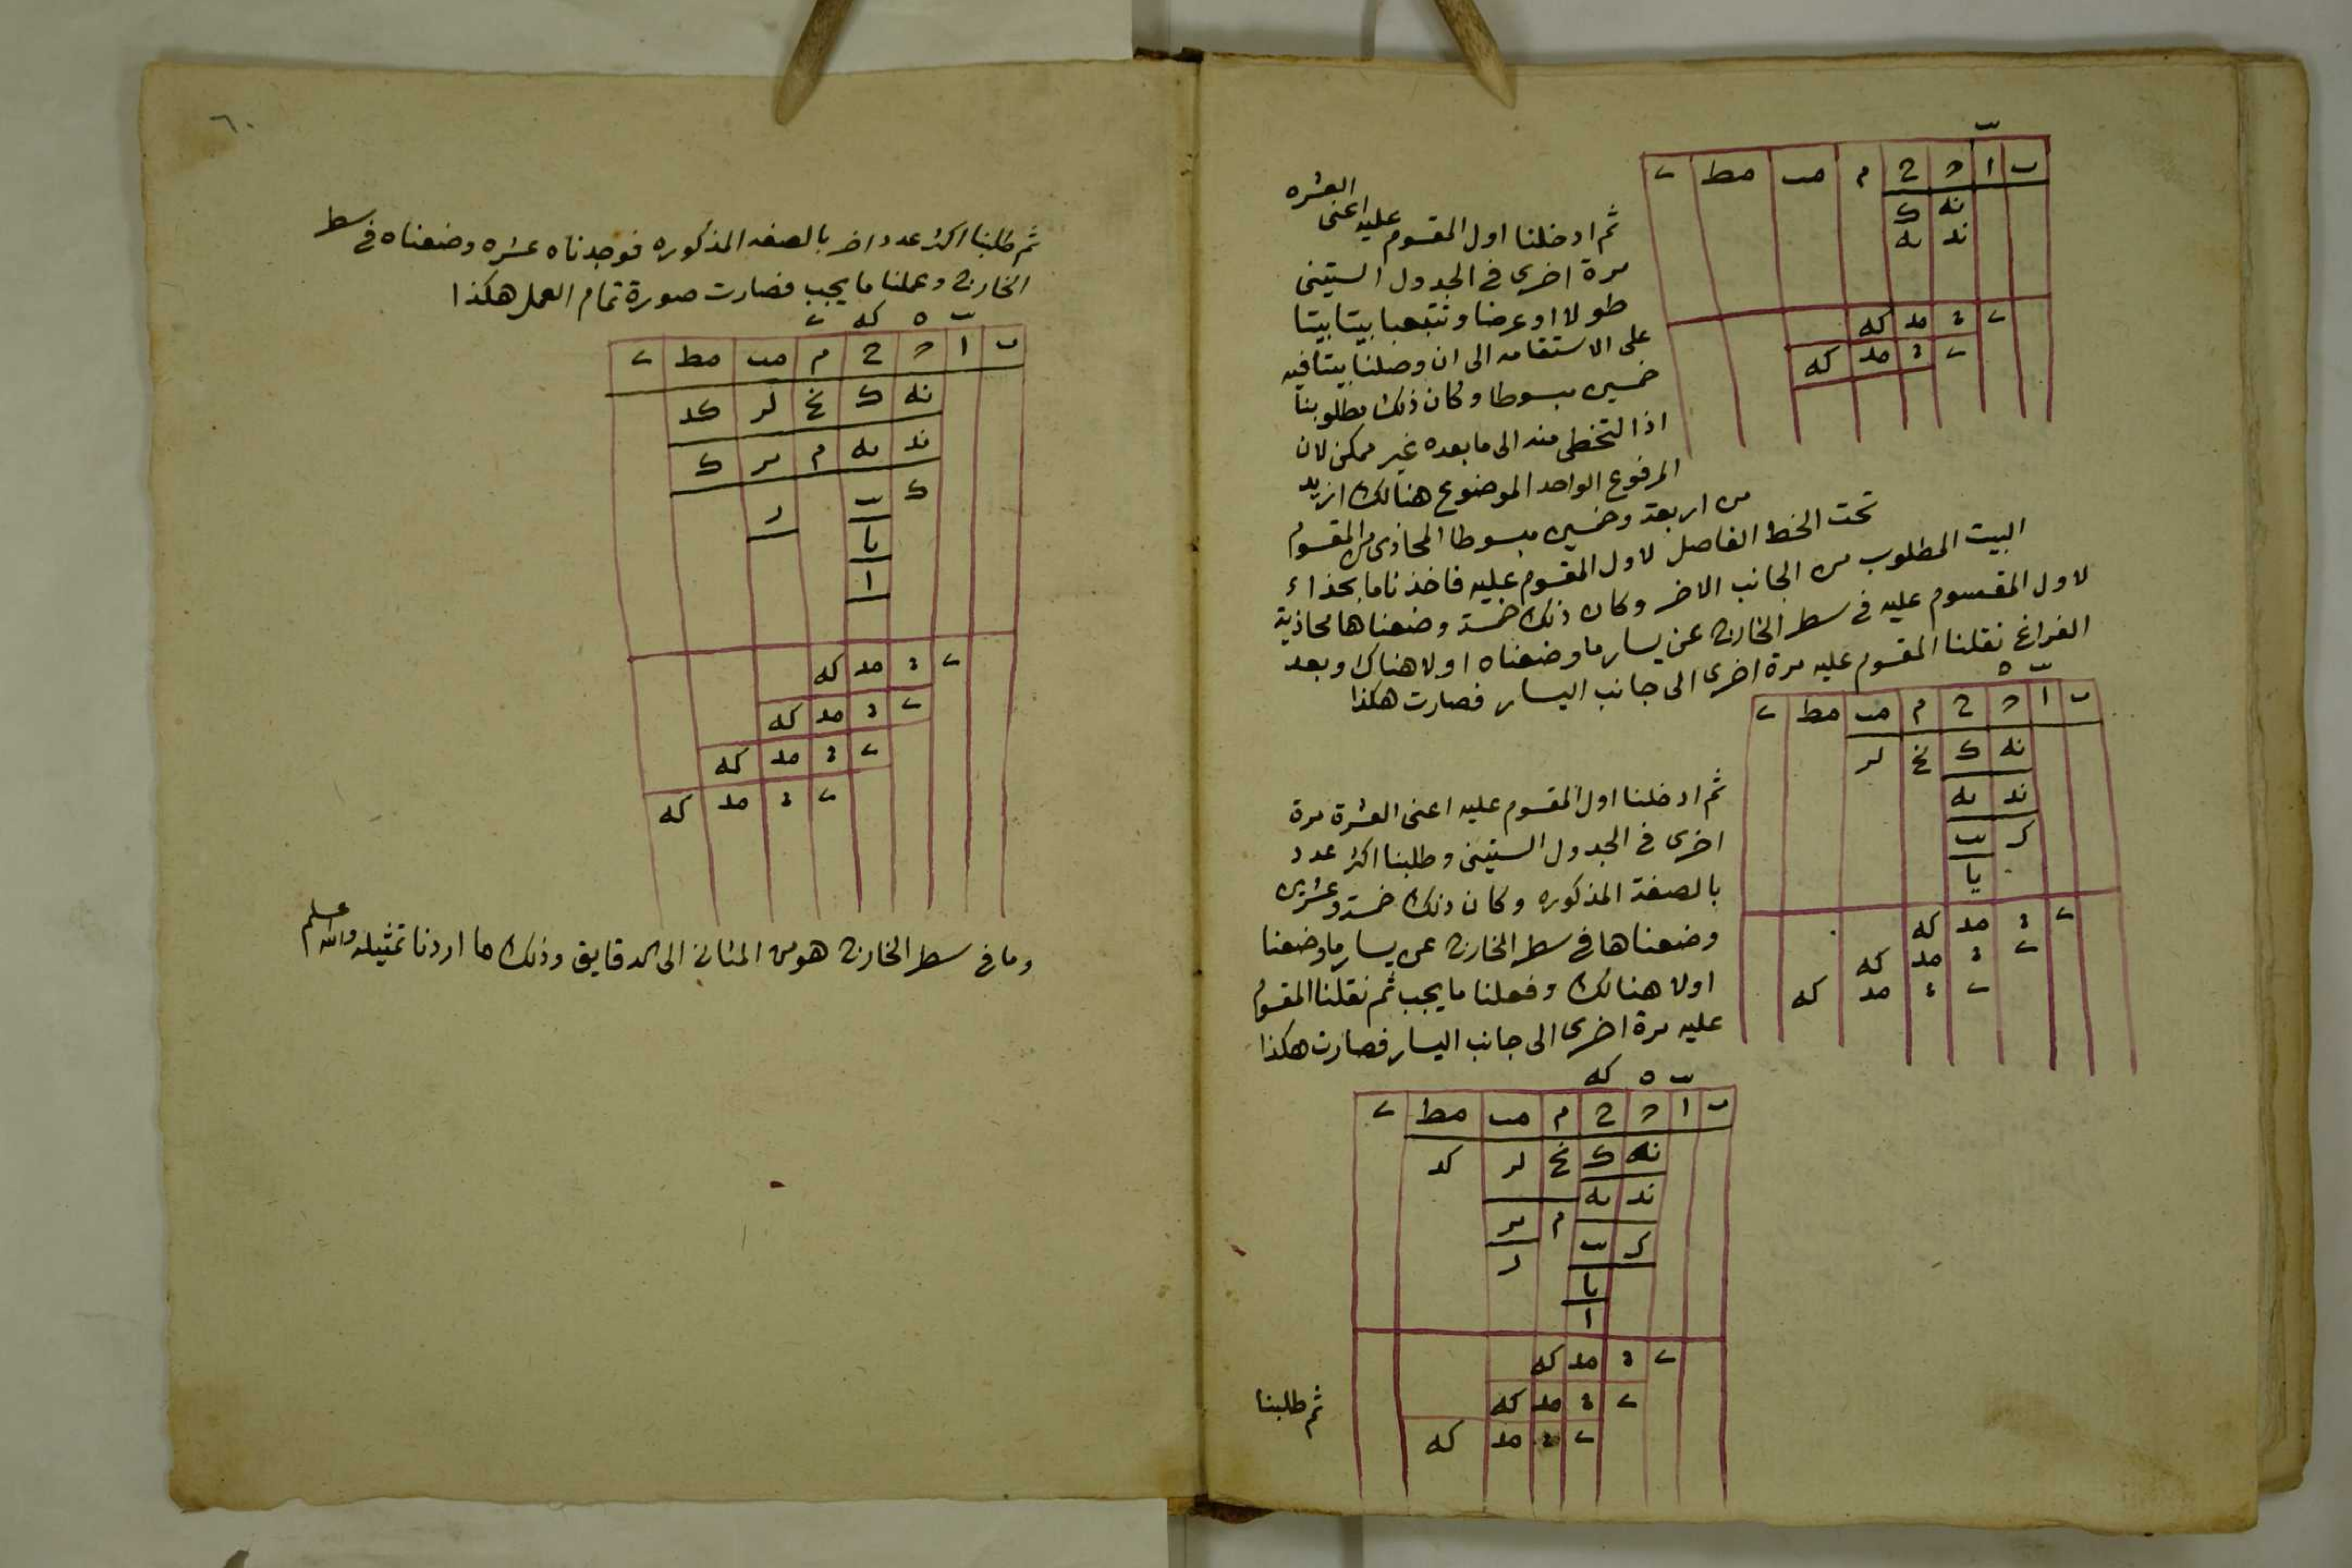 ب ا و ح م مب مط ى
نه ك
ند ىه
ى ٤ مد كه
ى ٤ مد كه
ثم ادخلنا اول المقسوم عليه اعنى العشره
مرة اخرى فى الجدول الستينى
طولا او عرضا وتتبعنا بيتا بيتا
على الاستقامه الى ان وصلنا بيتا فيه
خمسين مبسوطا وكان ذلك مطلوبنا
اذ التخطى منه الى ما بعده غير ممكن لان
المرفوع الواحد الموضوع هنالك ازيد
من اربعة وخمسين مبسوطا المحاذى من المقسوم
تحت الخط الفاصل لاول المقسوم عليه فاخذنا ما بحذاء
البيت المطلوب من الجانب الاخر وكان ذلك خمسة وضعناها محاذية
لاول المقسوم عليه فى سطر الخارج عن يسار ما وضعناه اولا هناك وبعد
الفراغ نقلنا المقسوم عليه مرة اخرى الى جانب اليسار فصارت هكذا
ب ا و ح م مب مط ى
نه ك لر
ند ىه
ك ب
يا
ى ٤ مد كه
ى ٤ مد كه
ى ٤ مد كه
ثم ادخلنا اول المقسوم عليه اعنى العشرة مرة
اخرى فى الجدول الستينى وطلبنا اكثر عدد
بالصفة المذكوره وكان ذلك خمسة وعشرين
وضعناها فى سطر الخارج عن يسار ما وضعنا
اولا هنالك وفعلنا ما يجب ثم نقلنا المقسوم
عليه مرة اخرى الى جانب اليسار فصارت هكذا
ب ه كه
ب ا و ح م مب مط ى
نه ك لر كد
ند ىه
م ىر
ك ب ر
يا
ا
ى ٤ مد كه
ى ٤ مد كه
ى ٤ مد كه
ثم طلبنا
٦٠
ثم طلبنا اكثر عدد اخر بالصفه المذكوره فوجدناه عشره وضعناه فى سطر
الخارج وعملنا ما يجب فصارت صورة تمام العمل هكذا
ب ه كه ى
ب ا و ح م مب مط ى
نه ك لر كد
ند ىه م ىر ك
ك ب ر
يا
ا
ى ٤ مد كه
ى ٤ مد كه
ى ٤ مد كه
ى ٤ مد كه
وما فى سطر الخارج هو من المثانى الى الدقايق وذلك ما اردنا تمثيله والله اعلم